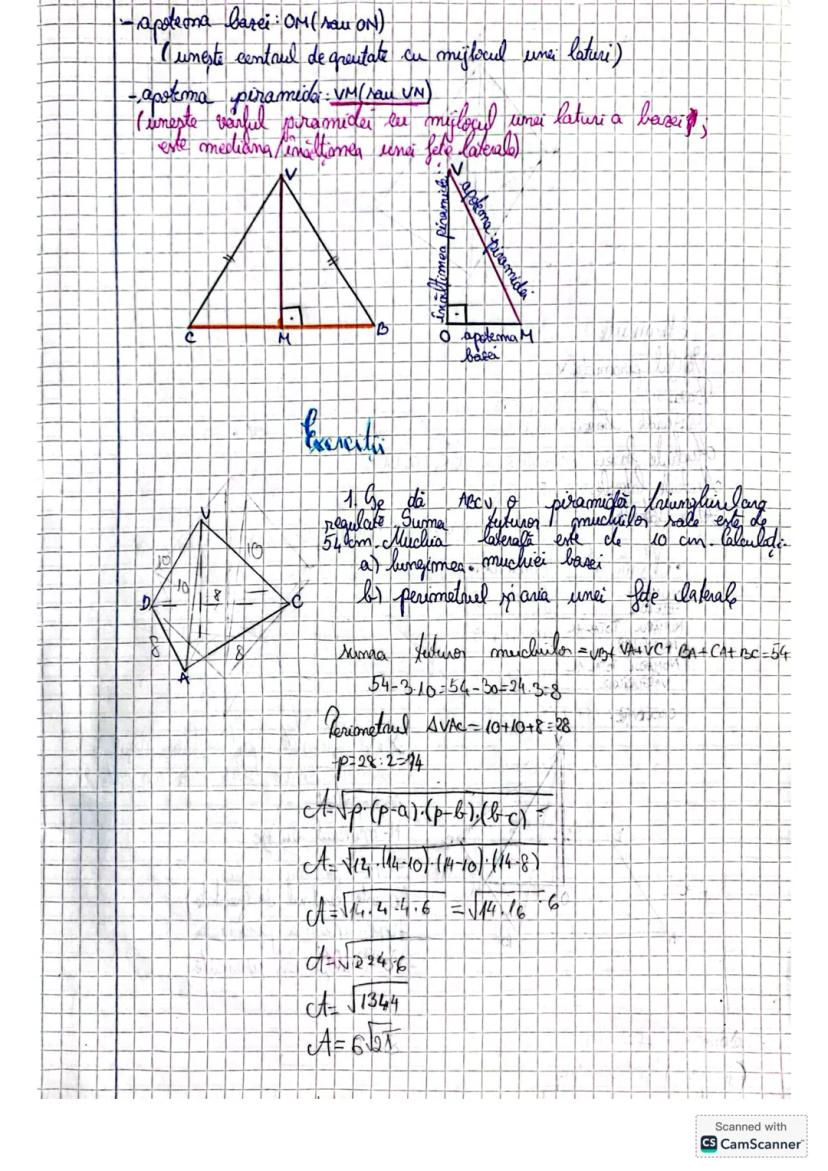 - apotema bazei: OM (sau ON)
(unește centrul de greutate cu mijlocul unei laturi)
- apotema piramidei: VM (sau VN)
(unește vârful piramidei cu mijlocul unei laturi a bazei;
este mediana/înălțimea unei fețe laterale)
V
C
M
B
V
înălțimea piramidei
apotema piramidei
O
apotema
bazei
M
Exerciții
1. Se dă ABCV o piramidă triunghiulară
regulată. Suma tuturor muchiilor sale este de
54 cm. Muchia laterală este de 10 cm. Calculați:
a) lungimea muchiei bazei
b) perimetrul și aria unei fețe laterale
V
10
10
10
8
D
C
8
8
A
suma tuturor muchiilor = VB+ VA+VC+ BA+CA+BC=54
54-3·10=54-30=24:3=8
Perimetrul ΔVAC=10+10+8=28
p=28:2=14
A=√p·(p-a)·(p-b)·(b-c) =
A=√14·(14-10)·(14-10)·(14-8)
A=√14·4·4·6 = √14·16·6
A=√224·6
A=√1344
A=6√21
Scanned with
CS CamScanner